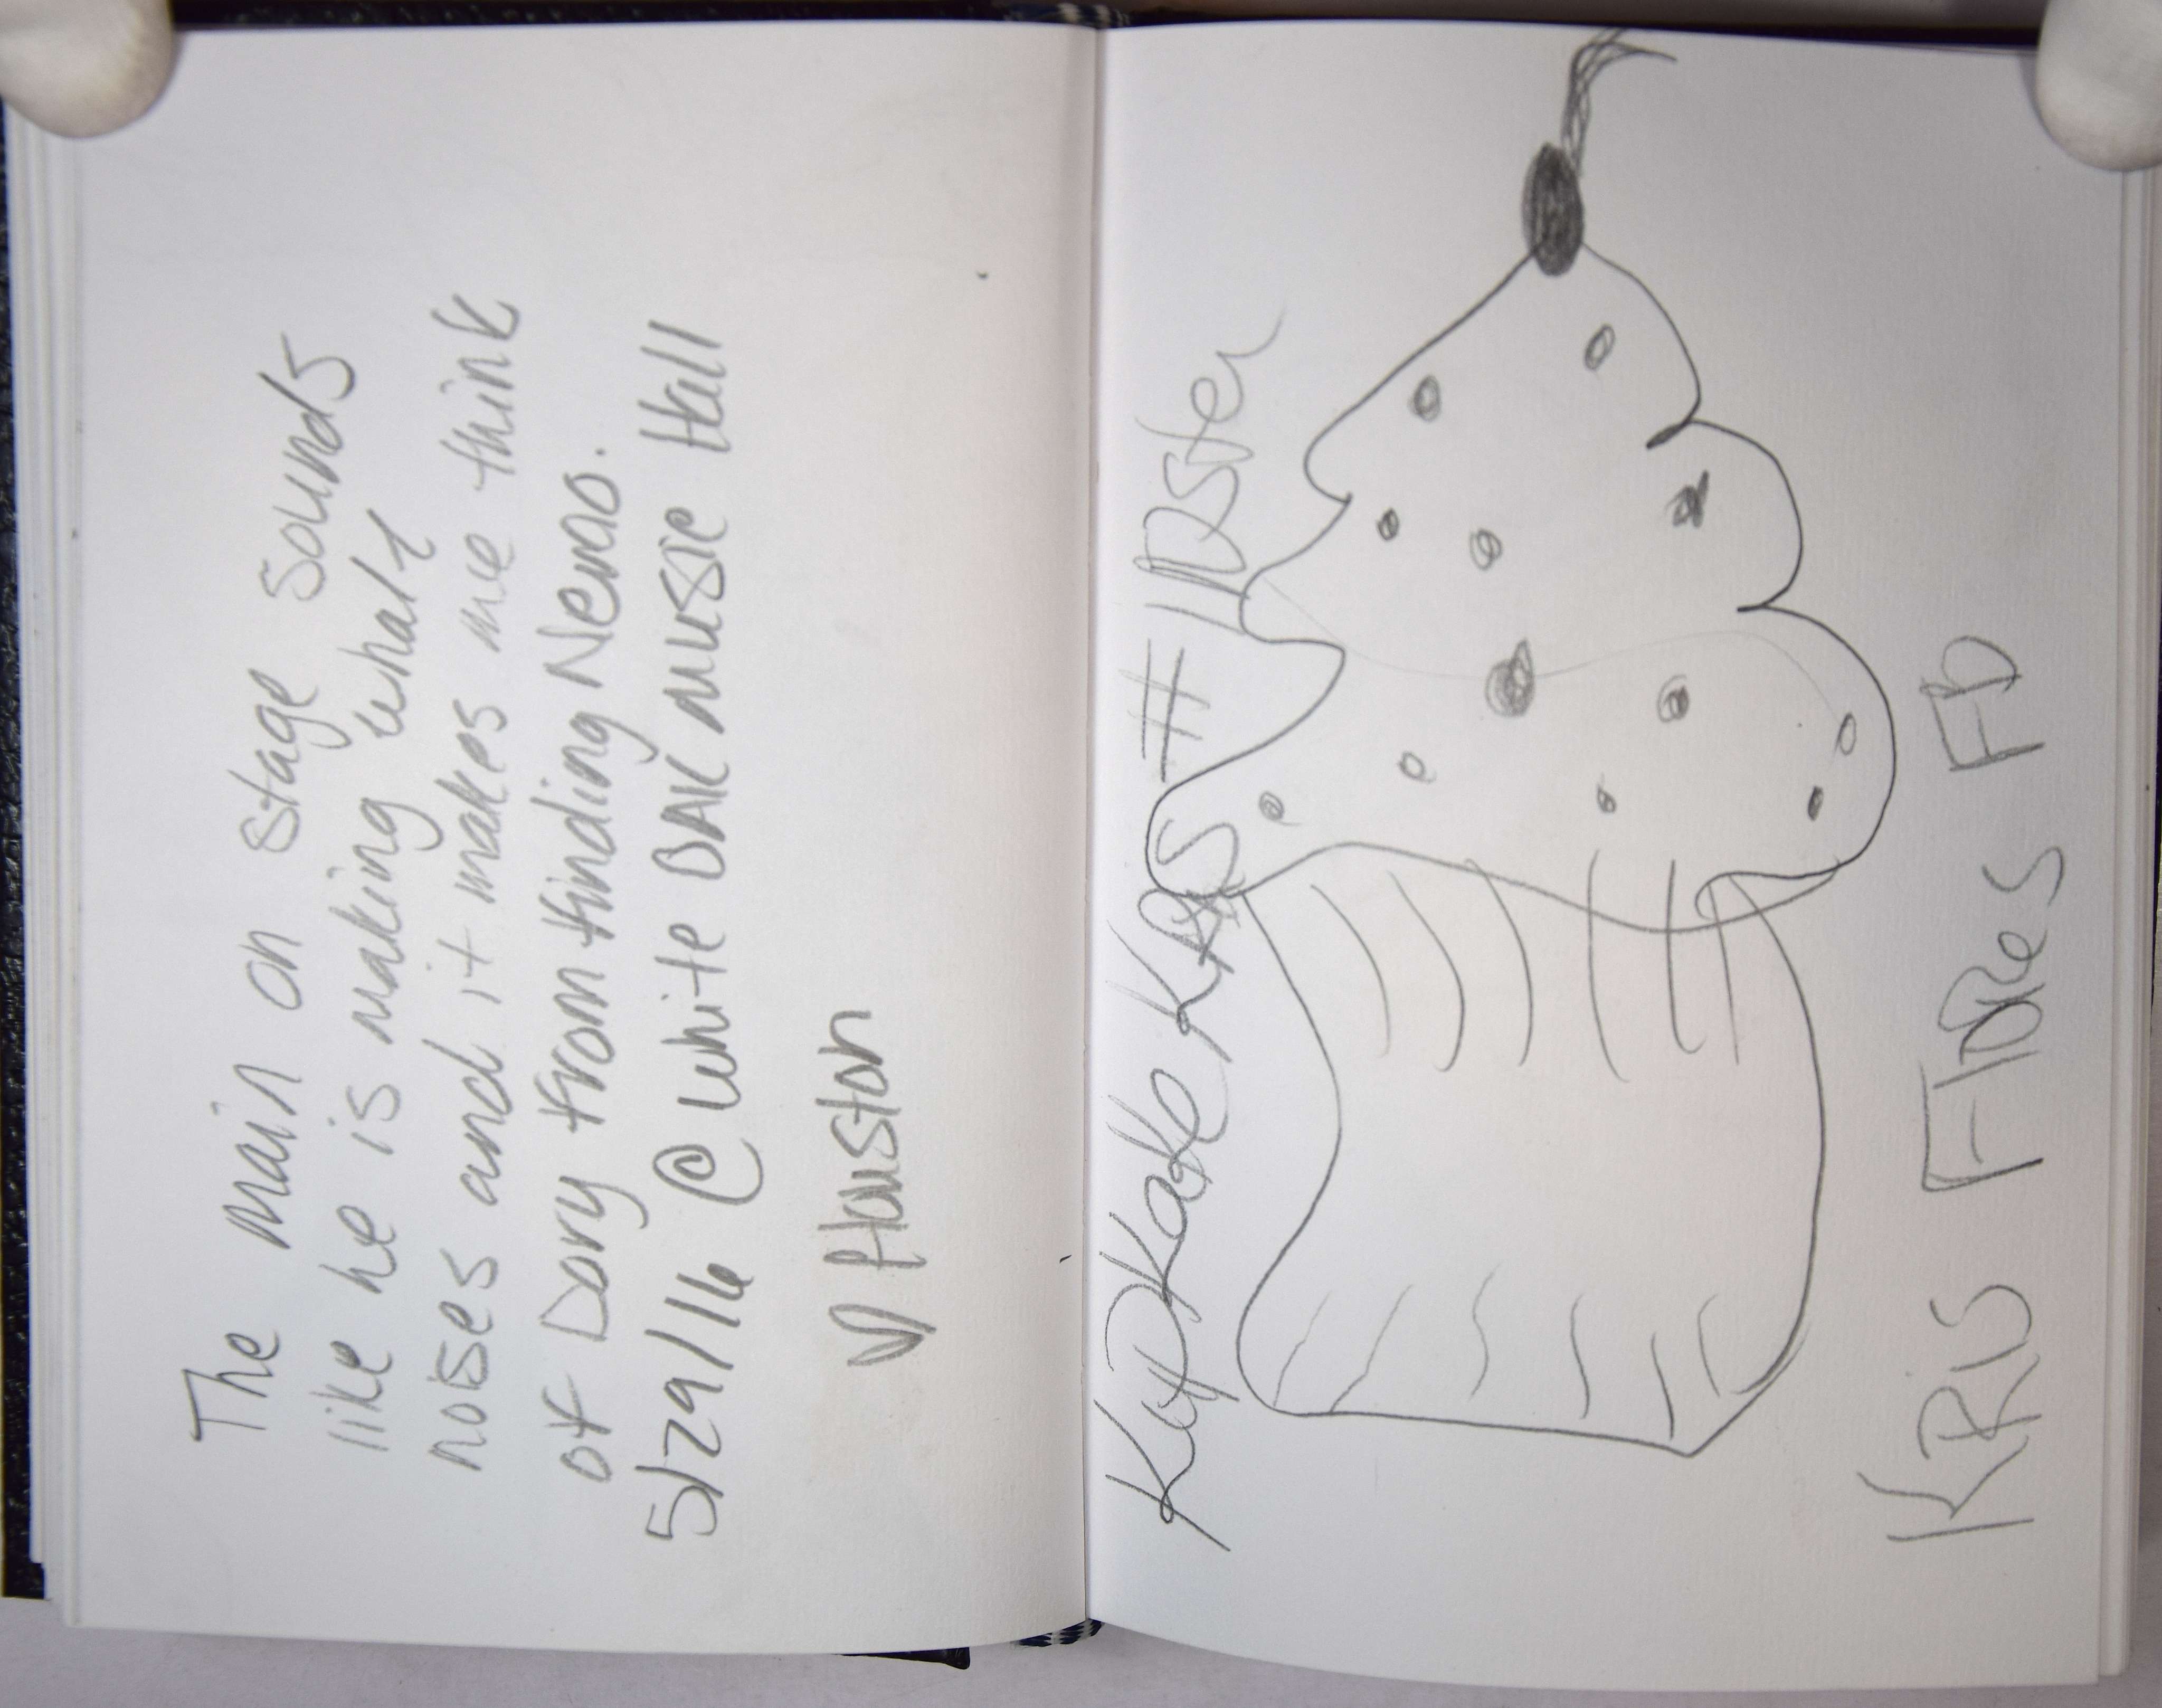 The main on stage sounds
like he is making whalt
noises and it makes me think
of Dory from finding Nemo.
5/29/16 @ white OAK music Hall
Houston
KupKake Kas #
KRis FlORes FB